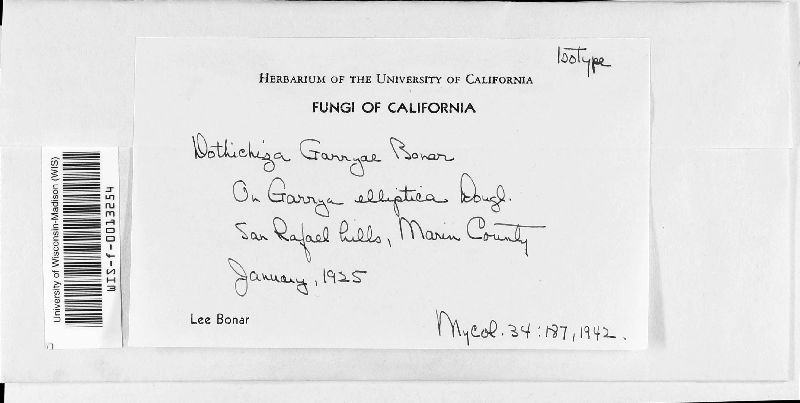 Isotype
HERBARIUM OF THE UNIVERSITY OF CALIFORNIA
FUNGI OF CALIFORNIA
Dothichiza Garryae Bonar
On Garrya elliptica Dougl.
San Rafael hills, Marin County
January, 1925
Lee Bonar
Mycol. 34:187, 1942.
University of Wisconsin-Madison (WIS)
WIS-f-0013254